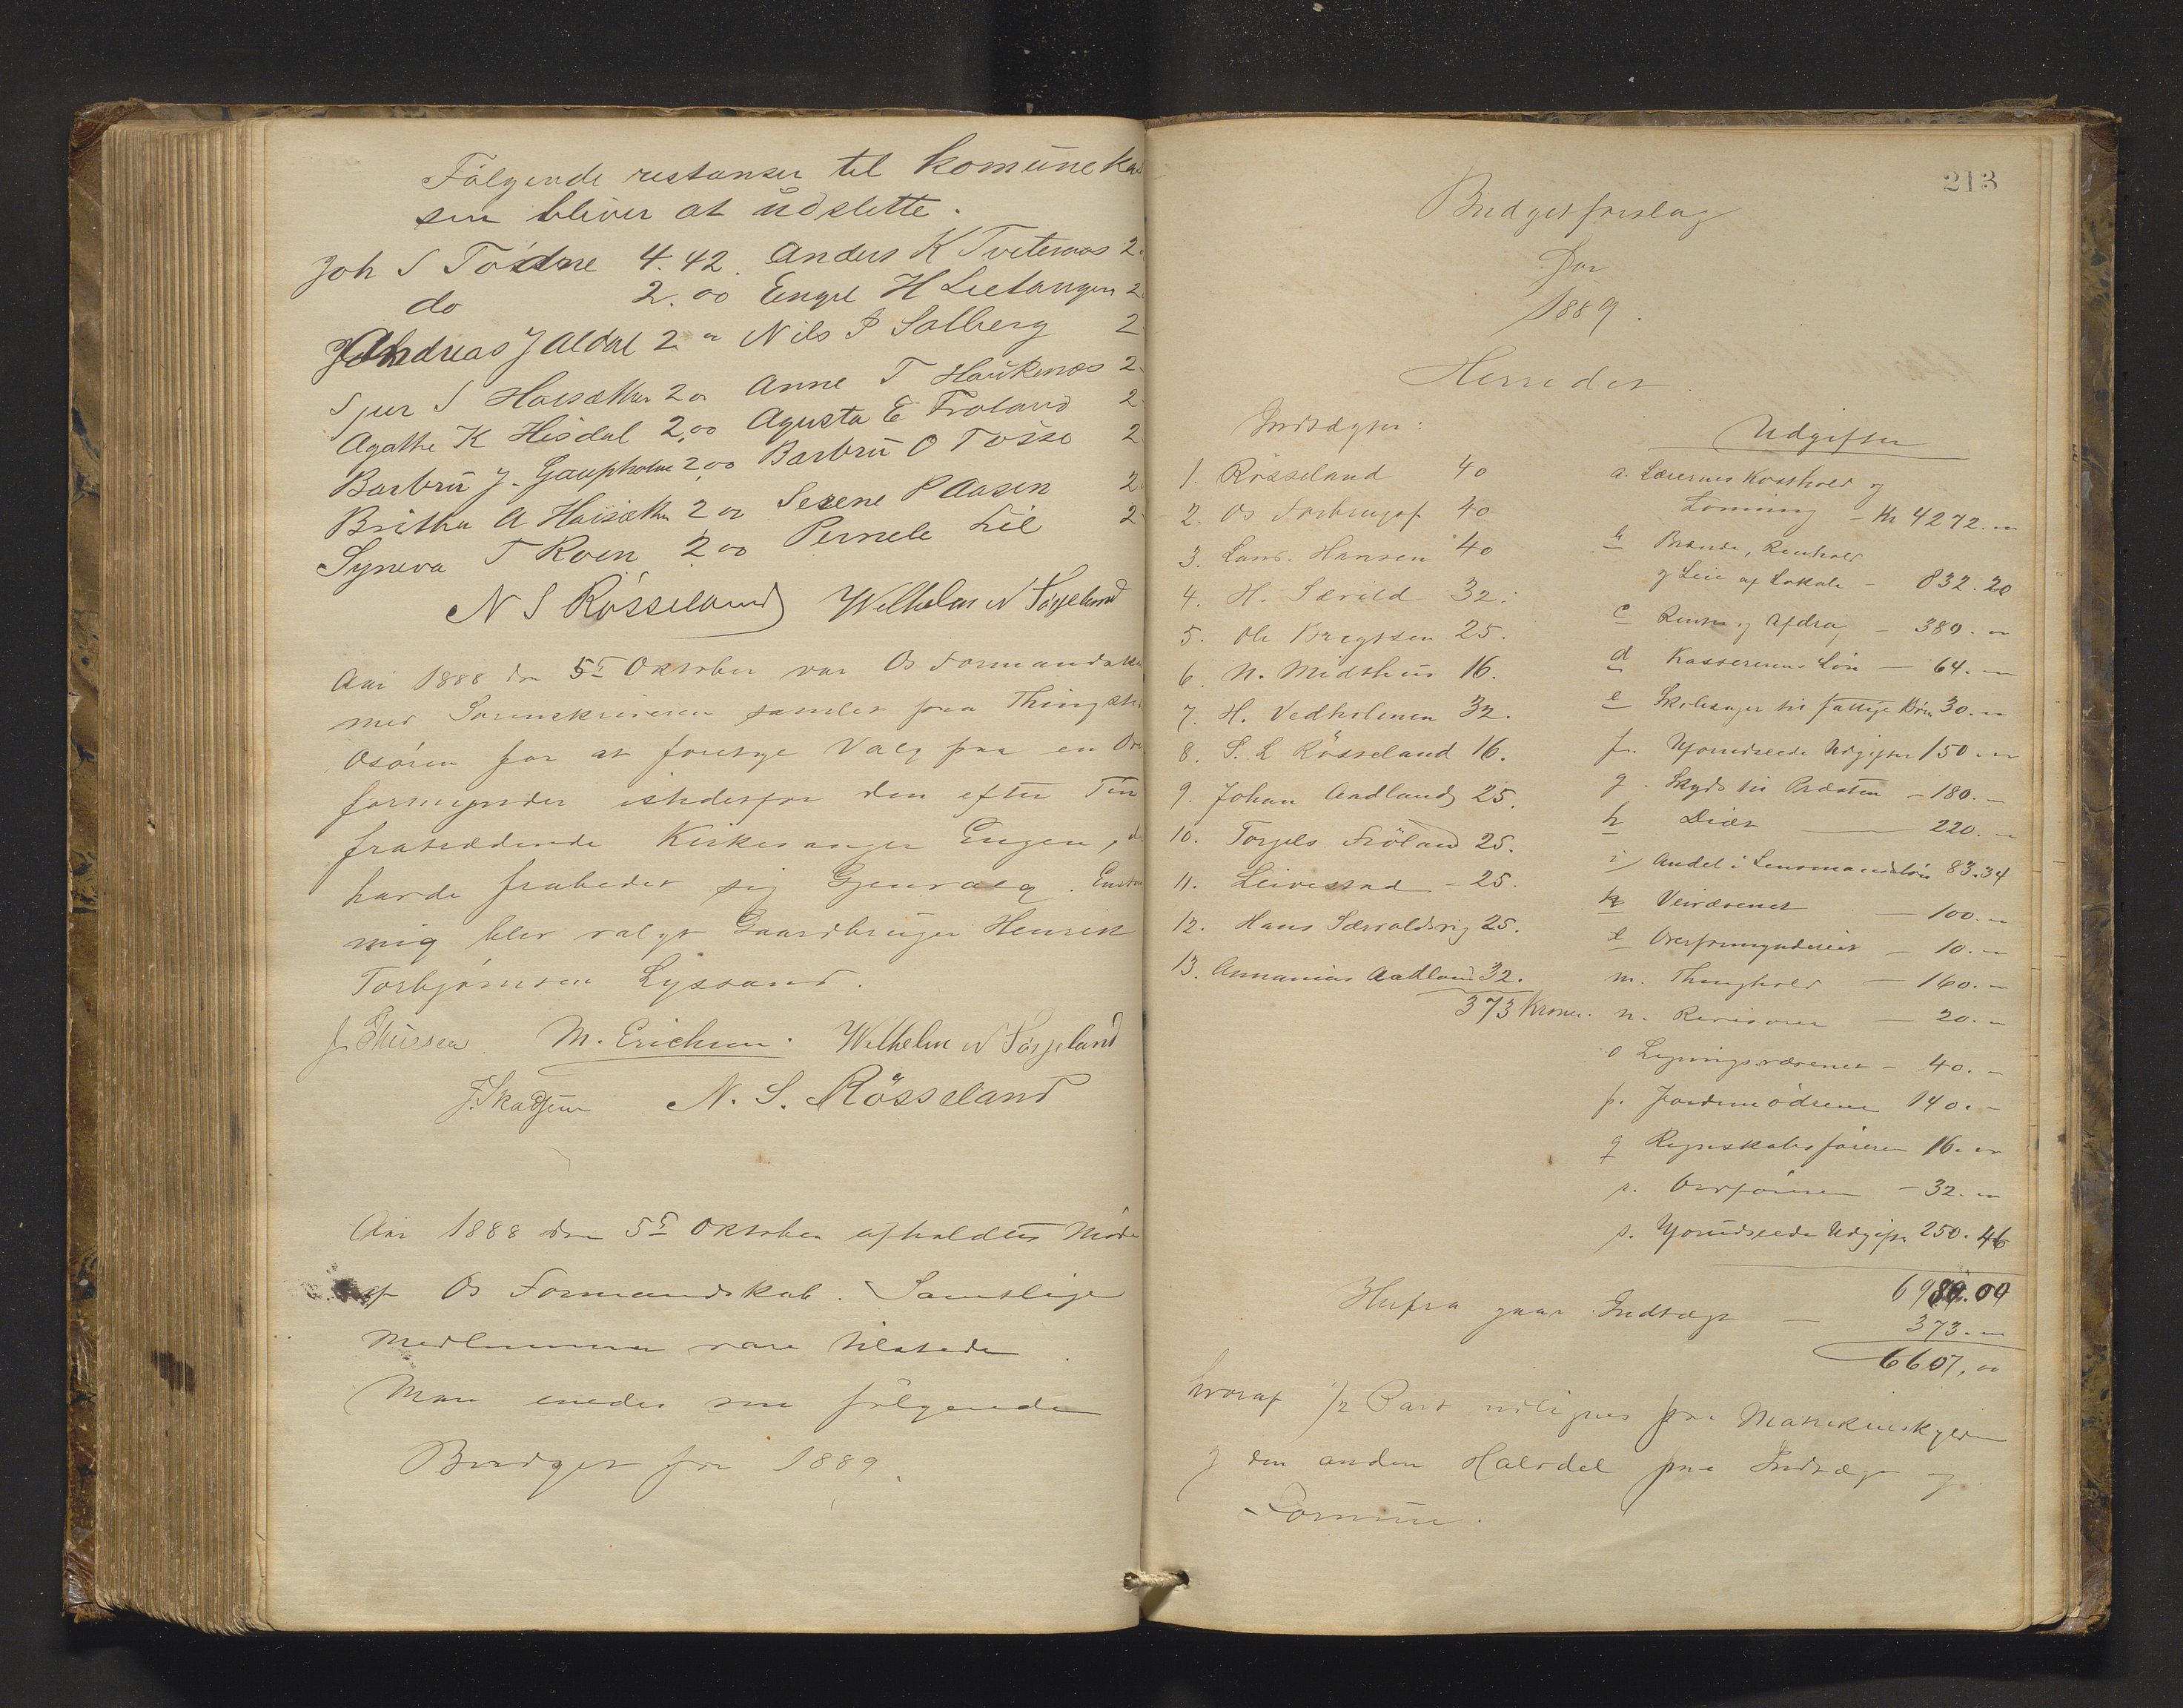 Følgende restanser til Komune kas
sen bliver at udslette.
Joh S Tøsdne 4.42. Anders K Tveteraas 2.
do 2.00 Engel H Lietangen 2
Andreas J Aldal 2 " Nils P Solberg 2
Sjur S Hausæther 2 00 Anne T Haukenæs 2
Agathe K Hisdal 2,00 Agusta E Frøland 2
Barbru J. Gaupholm 2,00 Barbru O Tøsse 2
Britha A Hausæth 2 00 Serene P Aasen 2
Syneva T Roen 2 00 Pernele Lil 2
N S Røsseland Wilhelm N Søfteland
Aar 1888 den 5t Oktober var Os Formandska
med Sorenskriveren samlet paa Thingste
Osøren for at foretage Valg paa en Ov
formynder istedetfor den efter Tur
fratrædende Kirkesanger Engen, d
havde frabedet sig Gjenvalg. Enst
mig blev valgt Gaardbruger Henrik
Torbjørnsen Lyssand.
M. Erichsen. Wilhelm N Søfteland
N. S. Rösseland
Aar 1888 den 5t Oktober afholdtes Møde
af Os Formandskab. Samtlige
Medlemmer vare tilstede.
Man enedes om følgende
Budget for 1889.
213
Budgetforslag
For
1889.
Herredet.
Indtægter:
1. Røsseland 40
2. Os Forbrugsf. 40
3. Lars. Hansen 40
4. H. Særvold 32.
5. Ole Brygtsen 25.
6. N. Midthus 16.
7. H. Vedholmen 32.
8. S. L Røsseland 16.
9. Johan Aadland 25.
10. Torgels Frøland 25.
11. Leivestad - 25.
12. Hans Særvoldsvig 25.
13. Annanias Aadland 32.
373 Kroner.
Udgifter
a. Lærernes Kosthold og
Lønning - Kr 4272. "
b Brænde, Renhold
og Leie af Lokale - 832.20
c Renter og Afdrag - 380. "
d Kassererens Løn - 64. "
e Skolesager til fattige Børn 30. "
f. Uforudseede Udgifter 150. "
g. Skyds til Præsten - 180. -
h Diæt - 220. -
i Andel i Lensmandsløn 83.34
k Veivæsenet - 100. -
l Overformynderiet - 10. -
m. Thinghold - 160. -
n. Revisoren - 20. -
o Ligningsvæsenet - 40. -
p. Jordemødrene 140. -
q Regnskabsføreren 16. "
r. Ordføreren - 32. "
s. Uforudseede Udgifter 250.46
6980.00
Herfra gaar Indtægt - 373. "
6607,00
hvoraf 1/2 Part udlignes paa Matrikulskylden
og den anden Halvdel paa Indtægt og
Formue.